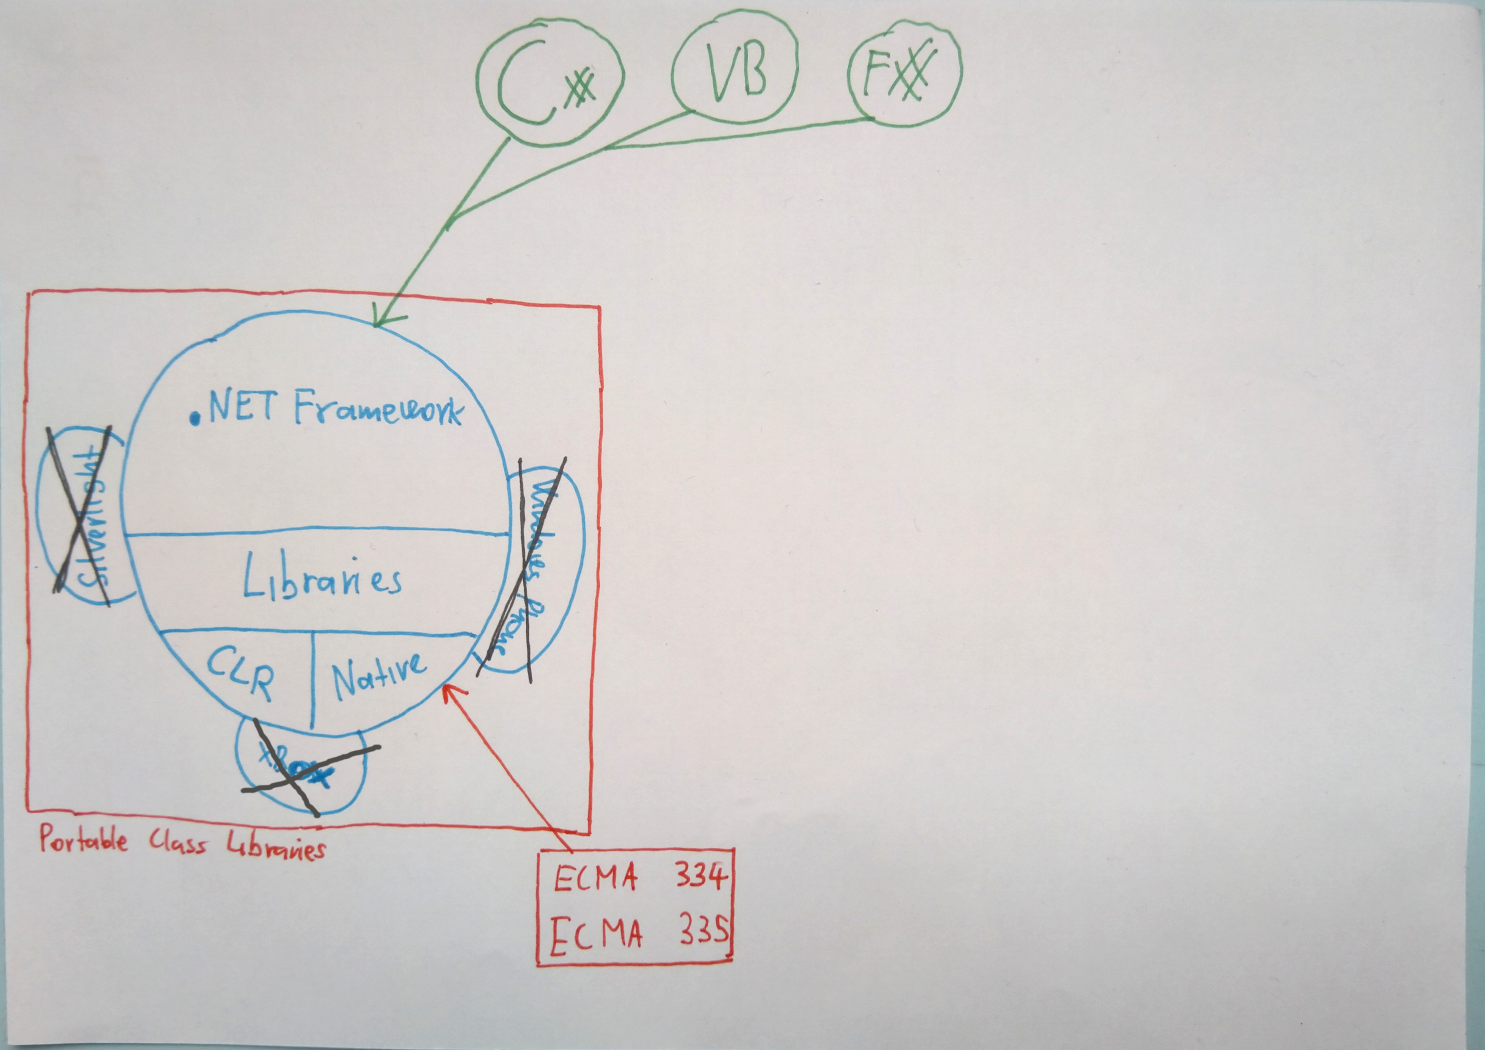 C#
VB
F#
.NET Framework
Silverlight
Windows Phone
Libraries
CLR
Native
XBox
Portable Class Libraries
ECMA 334
ECMA 335